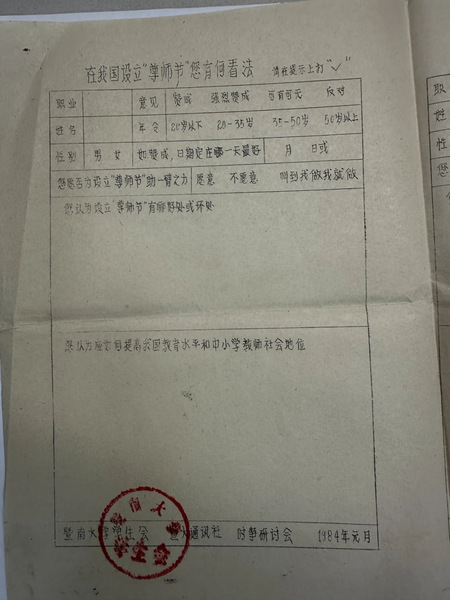 在我国设立“尊师节”您有何看法 请在提示上打“✓”
职业 意见 赞成 强烈赞成 可有可无 反对
姓名 年令 20岁以下 20-35岁 35-50岁 50岁以上
性别 男 女 如赞成,日期定在哪一天最好 月 日或
您愿否为设立“尊师节”助一臂之力 愿意 不愿意 叫到我做我就做
您认为设立“尊师节”有哪好处或坏处
您认为应如何提高我国教育水平和中小学教师社会地位
暨南大学学生会 暨大通讯社 时事研讨会 1984年元月
职
姓
性
您